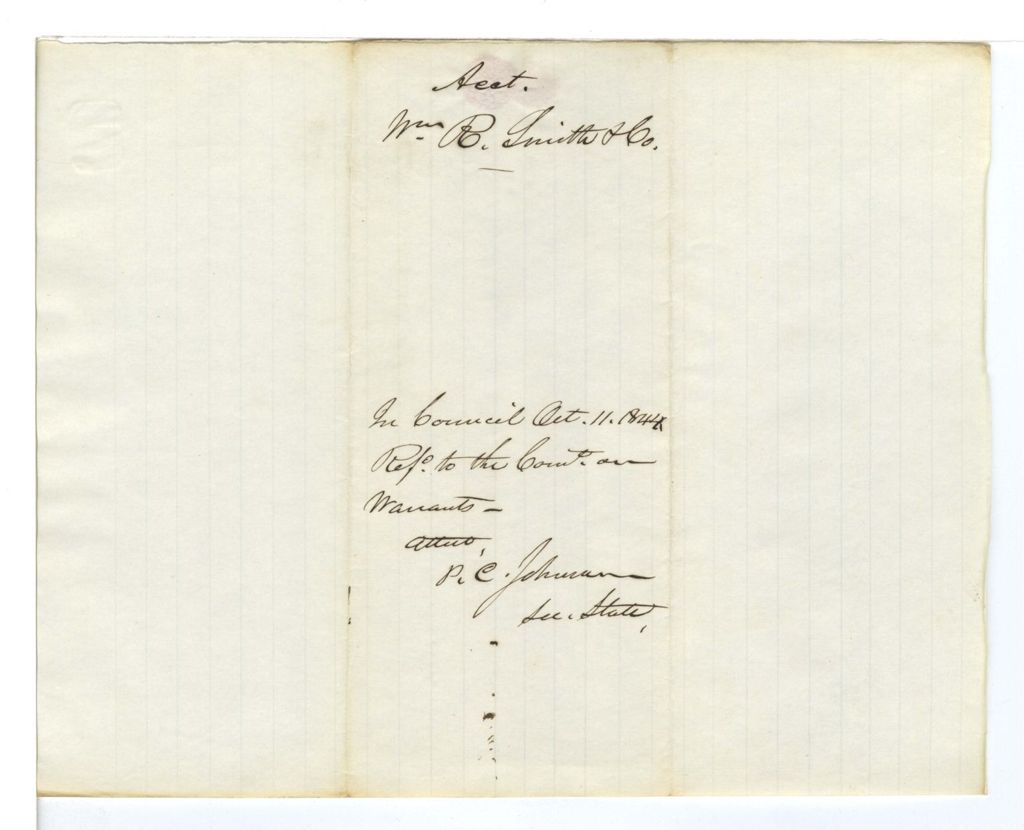 Acct.
Wm R. Smith & Co.
In Council Oct. 11. 1844
Refd. to the Comte. on
Warrants –
Attest,
P. C. Johnson
Sec. State,